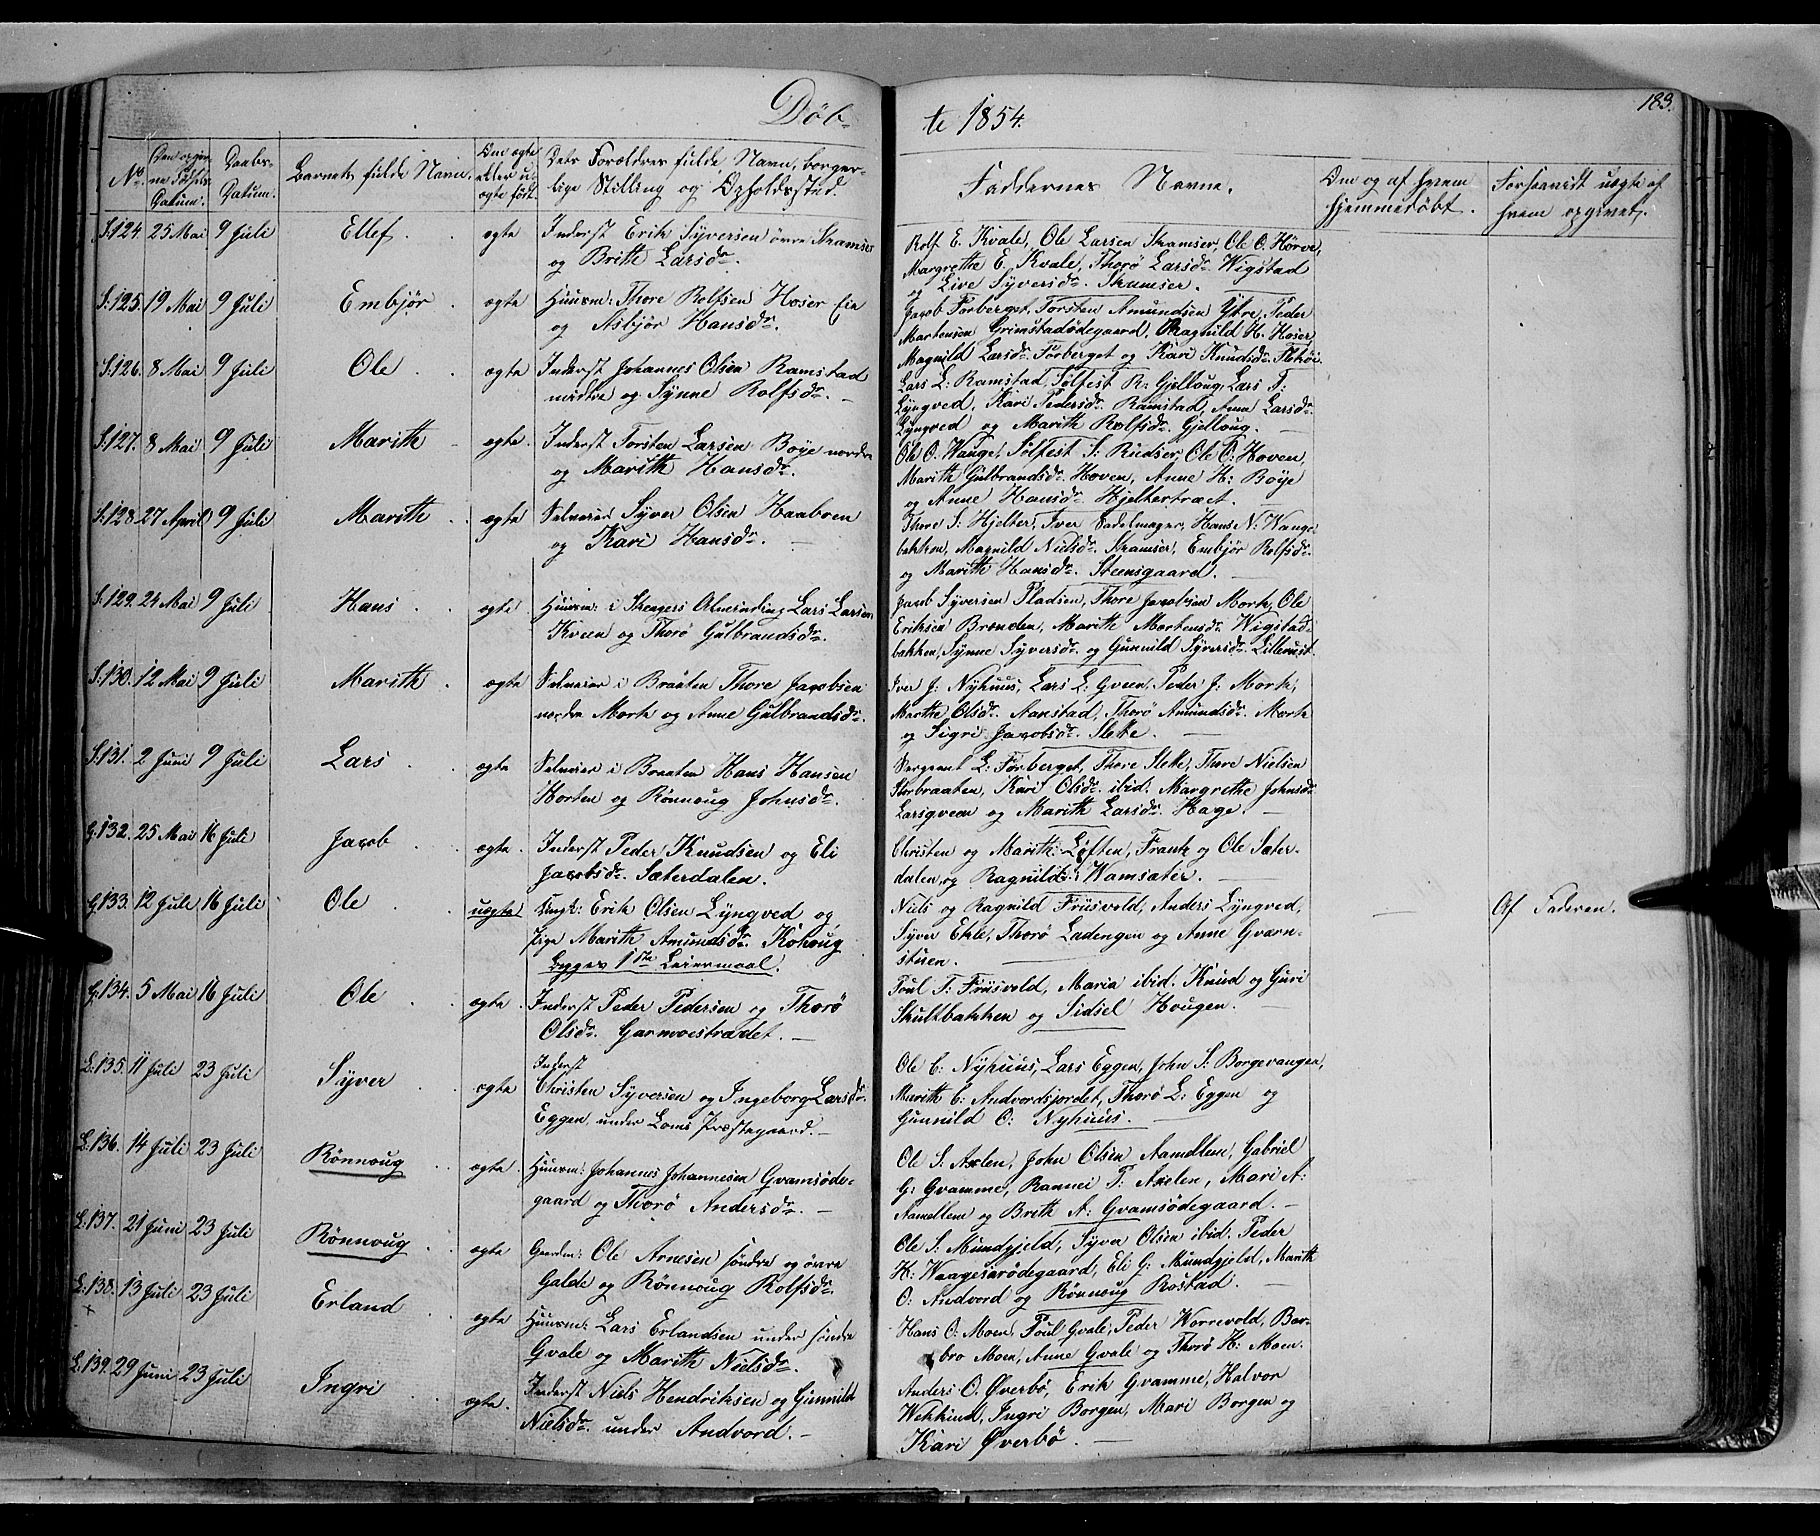 Döb-
te 1854.
183.
No.
Den opgivne Fødsels Datum.
Daabs-Datum.
Barnets fulde Navn.
Om ægte eller uægte født.
Dets Forældres fulde Navn, borger-
lige Stilling og Opholdssted.
Faddernes Navne.
Om og af hvem
hjemmedöbt.
Forsaavidt uægte af
hvem opgivet.
S. 124. 25 Mai 9 Juli Ellef ægte Inderst Erik Syversen övre Skamser
og Brith Larsdr.
Rolf E. Kvale, Ole Larsen Skamser, Ole O. Hörve,
Margrethe E. Kvale, Thorö Larsdr. Wigstad
og Live Syversdr. Skamser.
S. 125. 19 Mai 9 Juli Embjör ægte Huusm: Thore Rolfsen Hoser Eie
og Asbjör Hansdr.
Jacob Forberget, Torsten Amundsen Ytre, Peder
Mortensen Grimstadödegaard, Ragnild H. Hoser,
Magnild Larsdr. Forberget og Kari Knudsdr.
S. 126. 8 Mai 9 Juli Ole ægte Inderst Johannes Olsen Ramstad
midtre og Synne Rolfsdr.
Lars L: Ramstad, Sølfest R: Gjelloug, Lars T:
Lyngved, Kari Pedersdr. Ramstad, Anne Larsdr.
Lyngved og Marith Rolfsdr. Gjelloug.
S. 127. 8 Mai 9 Juli Marith ægte Inderst Torsten Larsen Böye nordre
og Marith Hansdr.
Ole O. Wange, Sølfest S: Rudser, Ole O: Hoven,
Marith Gulbrandsdr. Hoven, Anne H: Böye
og Anne Hansdr. Hjeltertræet.
S. 128. 27 April 9 Juli Marith ægte Selveier Syver Olsen Haaboen
og Kari Hansdr.
Thore S: Hjelter, Iver Sadelmager, Hans N: Wange-
bakken, Magnild Nielsdr. Skamser, Embjör Rolfsdr.
og Marith Hansdr. Steensgaard.
S. 129. 24 Mai 9 Juli Hans ægte Huusm: i Skeagers Almending Lars Larsen
Kveen og Thorö Gulbrandsdr.
Jacob Syversen Pladsen, Thore Jacobsen Mork, Ole
Eriksen Brænden, Marith Mortensdr. Wigstad-
bakken, Synne Syversdr. og Gunnild Syversdr.
S. 130. 12 Mai 9 Juli Marith ægte Selveier i Braaten Thore Jacobsen
nordre Mork og Anne Gulbrandsdr.
Iver J: Nyhuus, Lars L: Qveen, Peder J: Mork,
Marthe Olsdr. Aanstad, Thorö Amundsdr. Mork
og Sigri Jacobsdr. Slette.
S. 131. 2 Juni 9 Juli Lars ægte Selveier i Braaten Hans Hansen
Horten og Rönnoug Johnsdr.
Sergeant L: Forberget, Thore Slette, Thore Nielsen
Storbraaten, Kari Olsdr. ibid. Margrethe Johnsdr.
Larsqveen og Marith Larsdr. Hage.
G. 132. 25 Mai 16 Juli Jacob ægte Inderst Peder Knudsen og Eli
Jacobsdr. Sæterdalen.
Christen og Marith Løften, Frantz og Ole Sæter-
dalen, og Ragnild Wamsæter.
G. 133. 12 Juli 16 Juli Ole uægte Ungk: Erik Olsen Lyngved og
Pige Marith Amundsdr. Kohoug
Begges 1ste Leiermaal.
Niels og Ragnild Friisvold, Anders Lyngved,
Syver Ekle, Thorö Ladengen og Anne Qværn-
stuen.
Af Faderen.
G. 134. 5 Mai 16 Juli Ole ægte Inderst Peder Pedersen og Thorö
Olsdr. Garmoestrædet.
Poul T. Friisvold, Maria ibid. Knud og Guri
Skultbakken og Sidsel Hougen.
L. 135. 11 Juli 23 Juli Syver ægte Inderst
Christen Syversen og Ingeborg Larsdr.
Eggen, under Loms Præstegaard.
Ole C: Nyhuus, Lars Eggen, John S: Borgevangen,
Marith C: Andvordsjordet, Thorö L: Eggen og
Gunnild O: Nyhuus.
L. 136. 14 Juli 23 Juli Rönnoug ægte Huusm: Johannes Johannesen Qvamsöde-
gaard og Thorö Andersdr.
Ole S: Axlen, John Olsen Aamellem, Gabriel
G: Qvamme, Rannei T: Axelen, Mari A:
Aamellem og Brith A: Qvamsödegaard.
L. 137. 21 Juni 23 Juli Rönnoug ægte Gaardm: Ole Arnesen söndre og övre
Galde og Rönnoug Rolfsdr.
Ole S: Mundhjeld, Syver Olsen ibid. Peder
H: Waagesarödegaard, Eli G: Mundhjeld, Marith
O: Andvord og Rönnoug Rostad.
L. 138. 13 Juli 23 Juli Erland ægte Huusm: Lars Erlandsen under söndre
Qvale og Marith Nielsdr.
Hans O: Moen, Poul Qvale, Peder Worrevold, Bar-
bro Moen, Anne Qvale og Thorö H: Moen.
L. 139. 29 Juni 23 Juli Ingri ægte Inderst Niels Hendriksen og Gunnild
Nielsdr. under Andvord.
Anders O. Øverbö, Erik Qvamme, Halvor
Wekkind, Ingri Borgen, Mari Borgen og
Kari Øverbö.